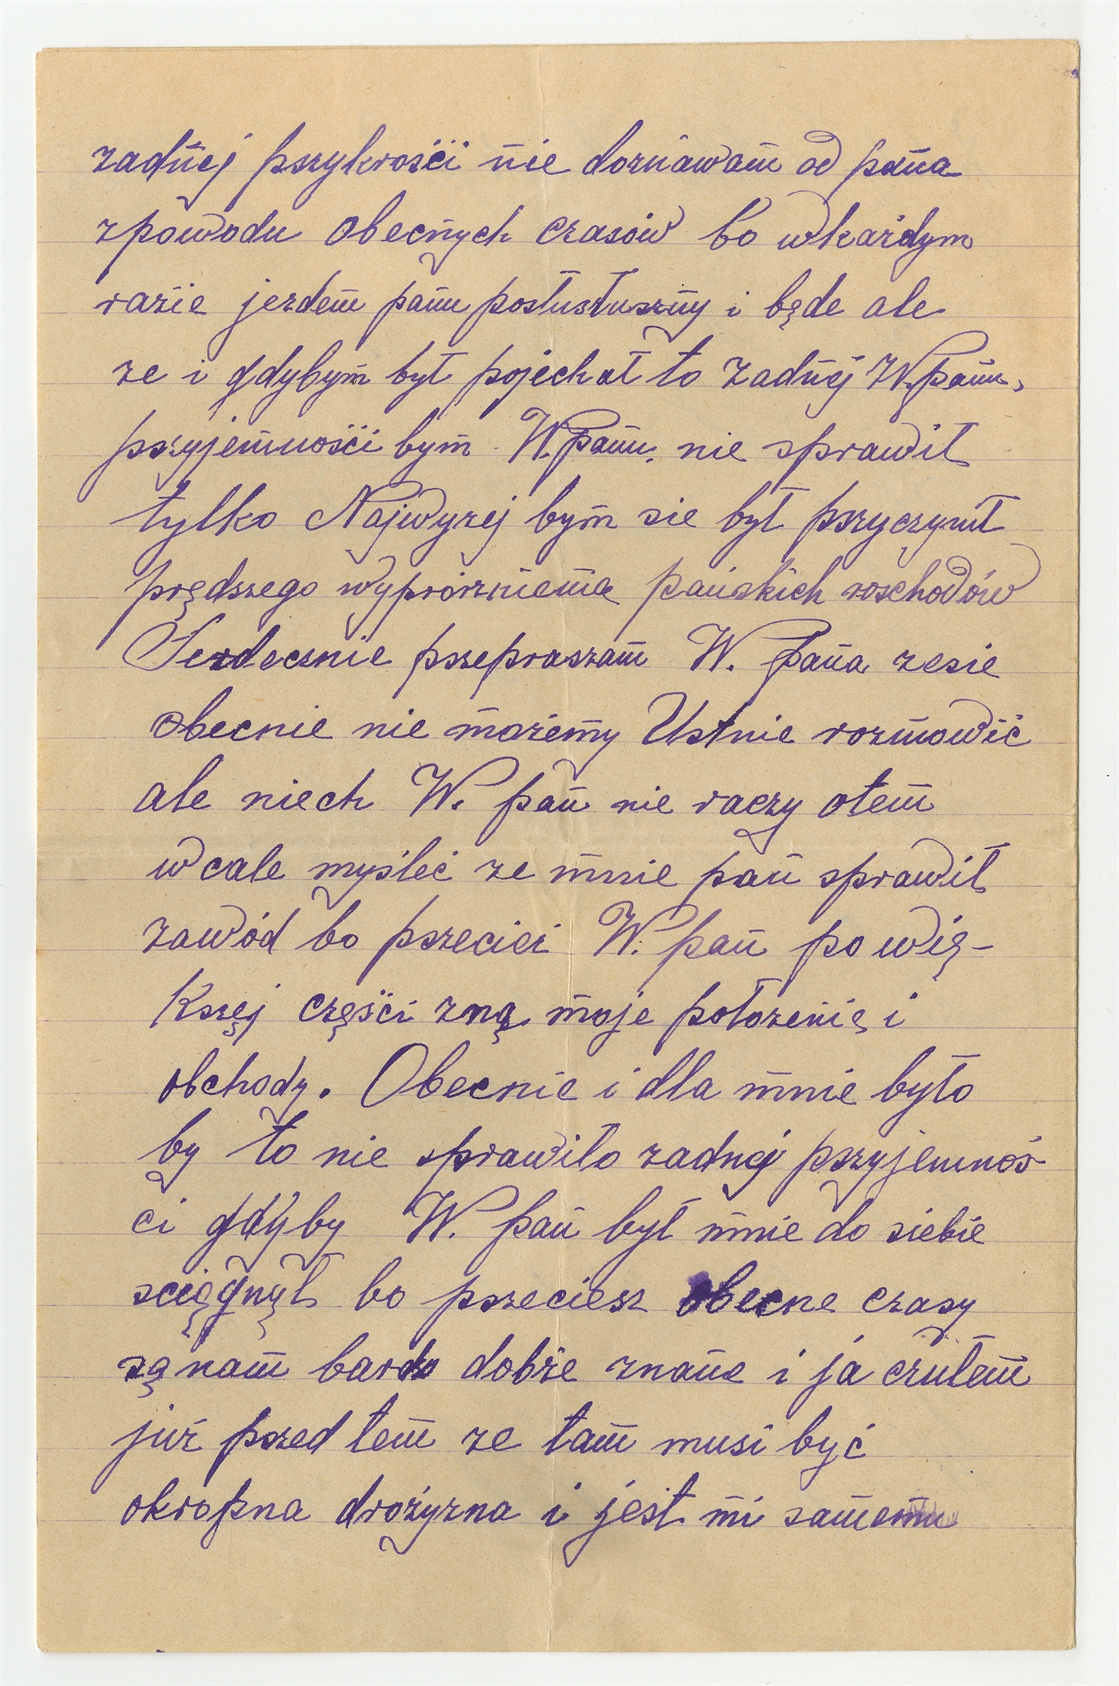 zadnej pszykrości nie doznawam od pana
zpowodu obecnych czasów bo wkażdym
razie jezdem panu posłustuszny i będe ale
ze i gdybym był pojechał to zadnej W. panu,
pszyjemności bym W. panu. nie sprawił
tylko Najwyzej bym sie był pszyczynił
prędszego wypróżnienia pańskich roschodów
Serdecznie pszepraszam W. pana zesie
obecnie nie możemy Ustnie rozmowić
ale niech W. pan nie raczy otem
wcale myśleć ze mnie pan sprawił
zawód bo pszecież W. pan po wię-
Kszej części zna moje położenie i
obchody. Obecnie i dla mnie było
by to nie sprawiło zadnej pszyjemnoś-
ci gdyby W. pan był mnie do siebie
sciągnył bo pszeciesz obecne czasy
są nam bardo dobże znane i ja czułem
już pszed tem ze tam musi być
okropna drożyzna i jest mi samemu